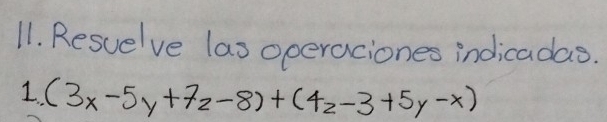 11. Resuelve las operaciones indicadas.
1. (3x-5y+7z-8)+(4z-3+5y-x)